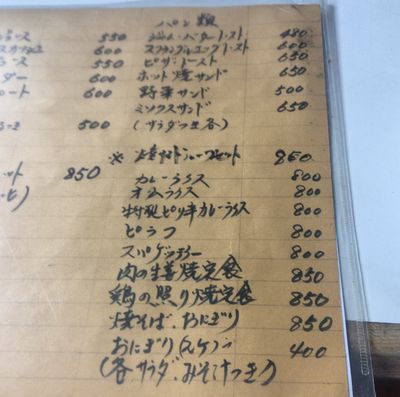 パン類
ジャム・バタートースト 480
スクランブルエッグトースト 600
ピザ・トースト 650
ホット焼サンド 650
野菜サンド 500
ミックスサンド 650
(サラダつき各)
ジュース 550
600
ース 550
ダー 600
ート 600
つき 500
ット 850
※ 860
カレーライス 800
オムライス 800
特製ピリ辛カレーライス 800
ピラフ 800
スパゲッティー 800
肉の生姜焼定食 850
鶏の照り焼定食 850
焼そば、おにぎり 850
おにぎり(2ケ) 400
(各サラダ、みそ汁つき)